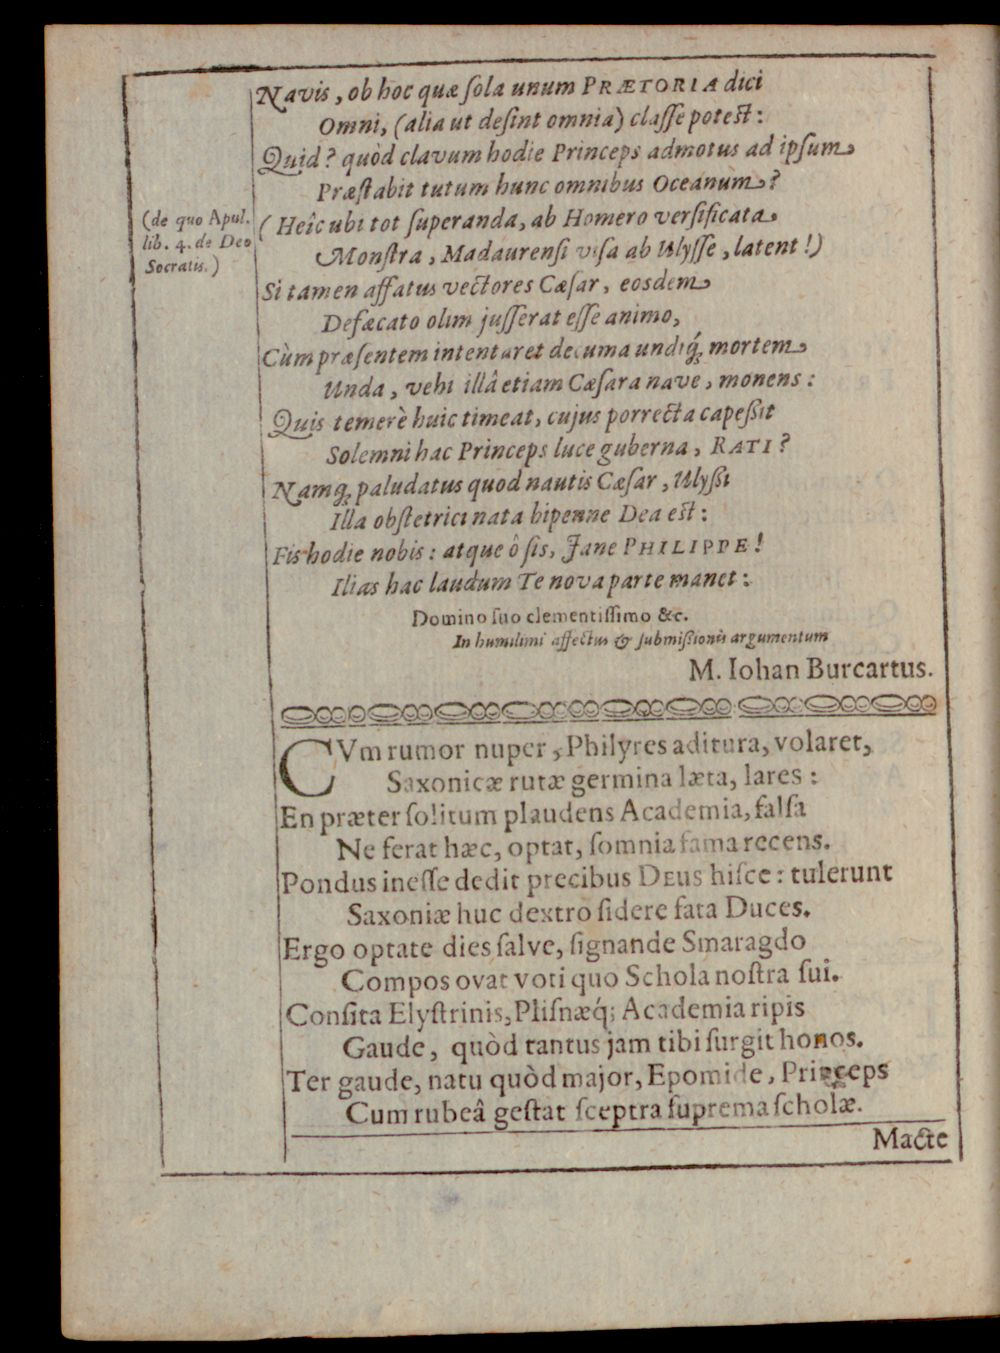 Navis, ob hoc quæ ſola unum PRÆTORIA dici
Omni, (alia ut deſint omnia) claſſe potest:
Quid? quòd clavum hodie Princeps admotus ad ipſum
Præſtabit tutum hunc omnibus Oceanum?
(de quo Apul.
lib. 4. de Deo
Socratis.)
(Heîc ubi tot ſuperanda, ab Homero verſificata
Monſtra, Madaurenſi viſa ab Ulyſſe, latent!)
Si tamen affatus vectores Cæſar, eosdem
Defæcato olim juſſerat eſſe animo,
Cùm præſentem intentaret decuma undiq́; mortem
Unda, vehi illâ etiam Cæſara nave, monens:
Quis temerè huic timeat, cujus porrecta capeßit
Solemni hac Princeps luce guberna, RATI?
Namq; paludatus quod nautis Cæſar, Ulyßi
Illa obſtetrici nata bipenne Dea est:
Fis hodie nobis: atque ô ſis, Jane PHILIPPE!
Ilias hac laudum Te nova parte manet:
Domino ſuo clementiſſimo &c.
In humilimi affectus & ſubmißionis argumentum
M. Iohan Burcartus.
CVm rumor nuper, Philyres aditura, volaret,
Saxonicæ rutæ germina læta, lares:
En præter ſolitum plaudens Academia, falſa
Ne ferat hæc, optat, ſomnia fama recens.
Pondus ineſſe dedit precibus DEUS hiſce: tulerunt
Saxoniæ huc dextro ſidere fata Duces.
Ergo optate dies ſalve, ſignande Smaragdo
Compos ovat voti quo Schola noſtra ſui.
Conſita Elyſtrinis, Pliſnæq́; Academia ripis
Gaude, quòd tantus jam tibi ſurgit honos.
Ter gaude, natu quòd major, Epomide, Princeps
Cum rubeâ geſtat ſceptra ſuprema ſcholæ.
Macte